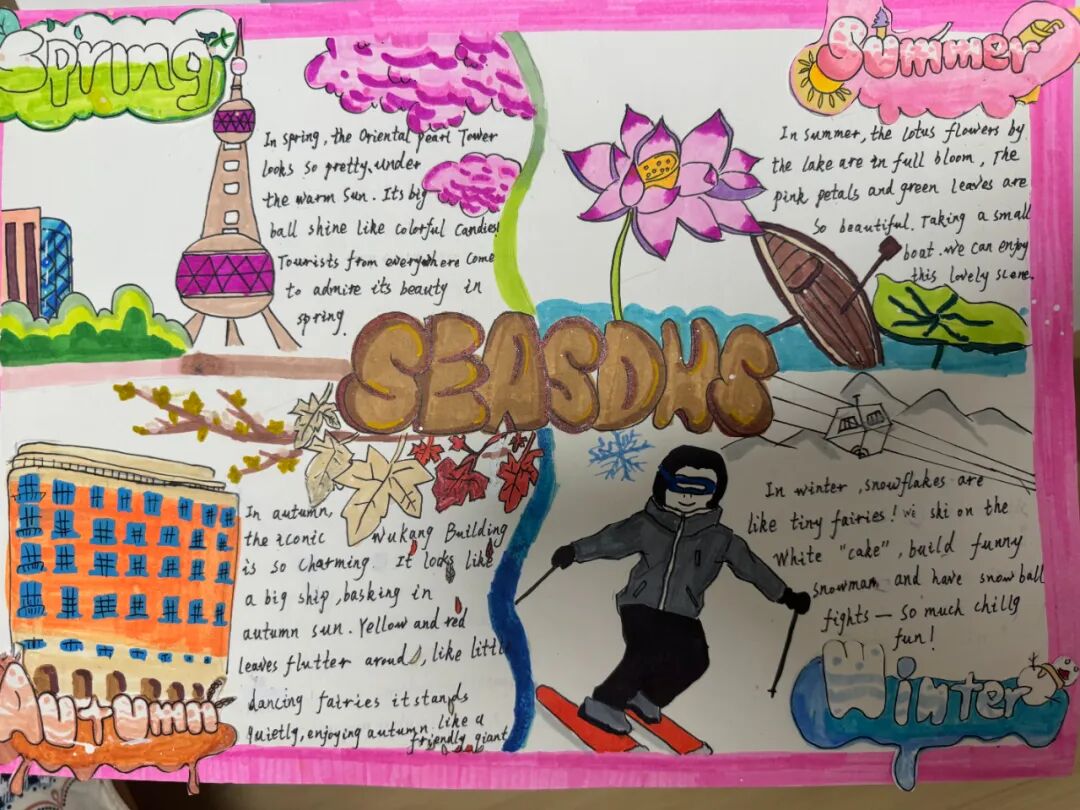 Spring
In spring, the Oriental pearl Tower
looks so pretty under
the warm Sun. Its big
ball shine like colorful candies!
Tourists from everywhere come
to admire its beauty in
spring.
Summer
In summer, the lotus flowers by
the lake are in full bloom, The
pink petals and green leaves are
so beautiful. Taking a small
boat. we can enjoy
this lovely scene.
SEASONS
In autumn,
the iconic Wukang Building
is so charming. It looks like
a big ship, basking in
autumn sun. Yellow and red
leaves flutter aroud, like little
dancing fairies it stands
quietly, enjoying autumn. like a
friendly giant
Autumn
In winter, snowflakes are
like tiny fairies! we ski on the
White "cake", build funny
snowman and have snowball
fights — so much chillg
fun!
Winter